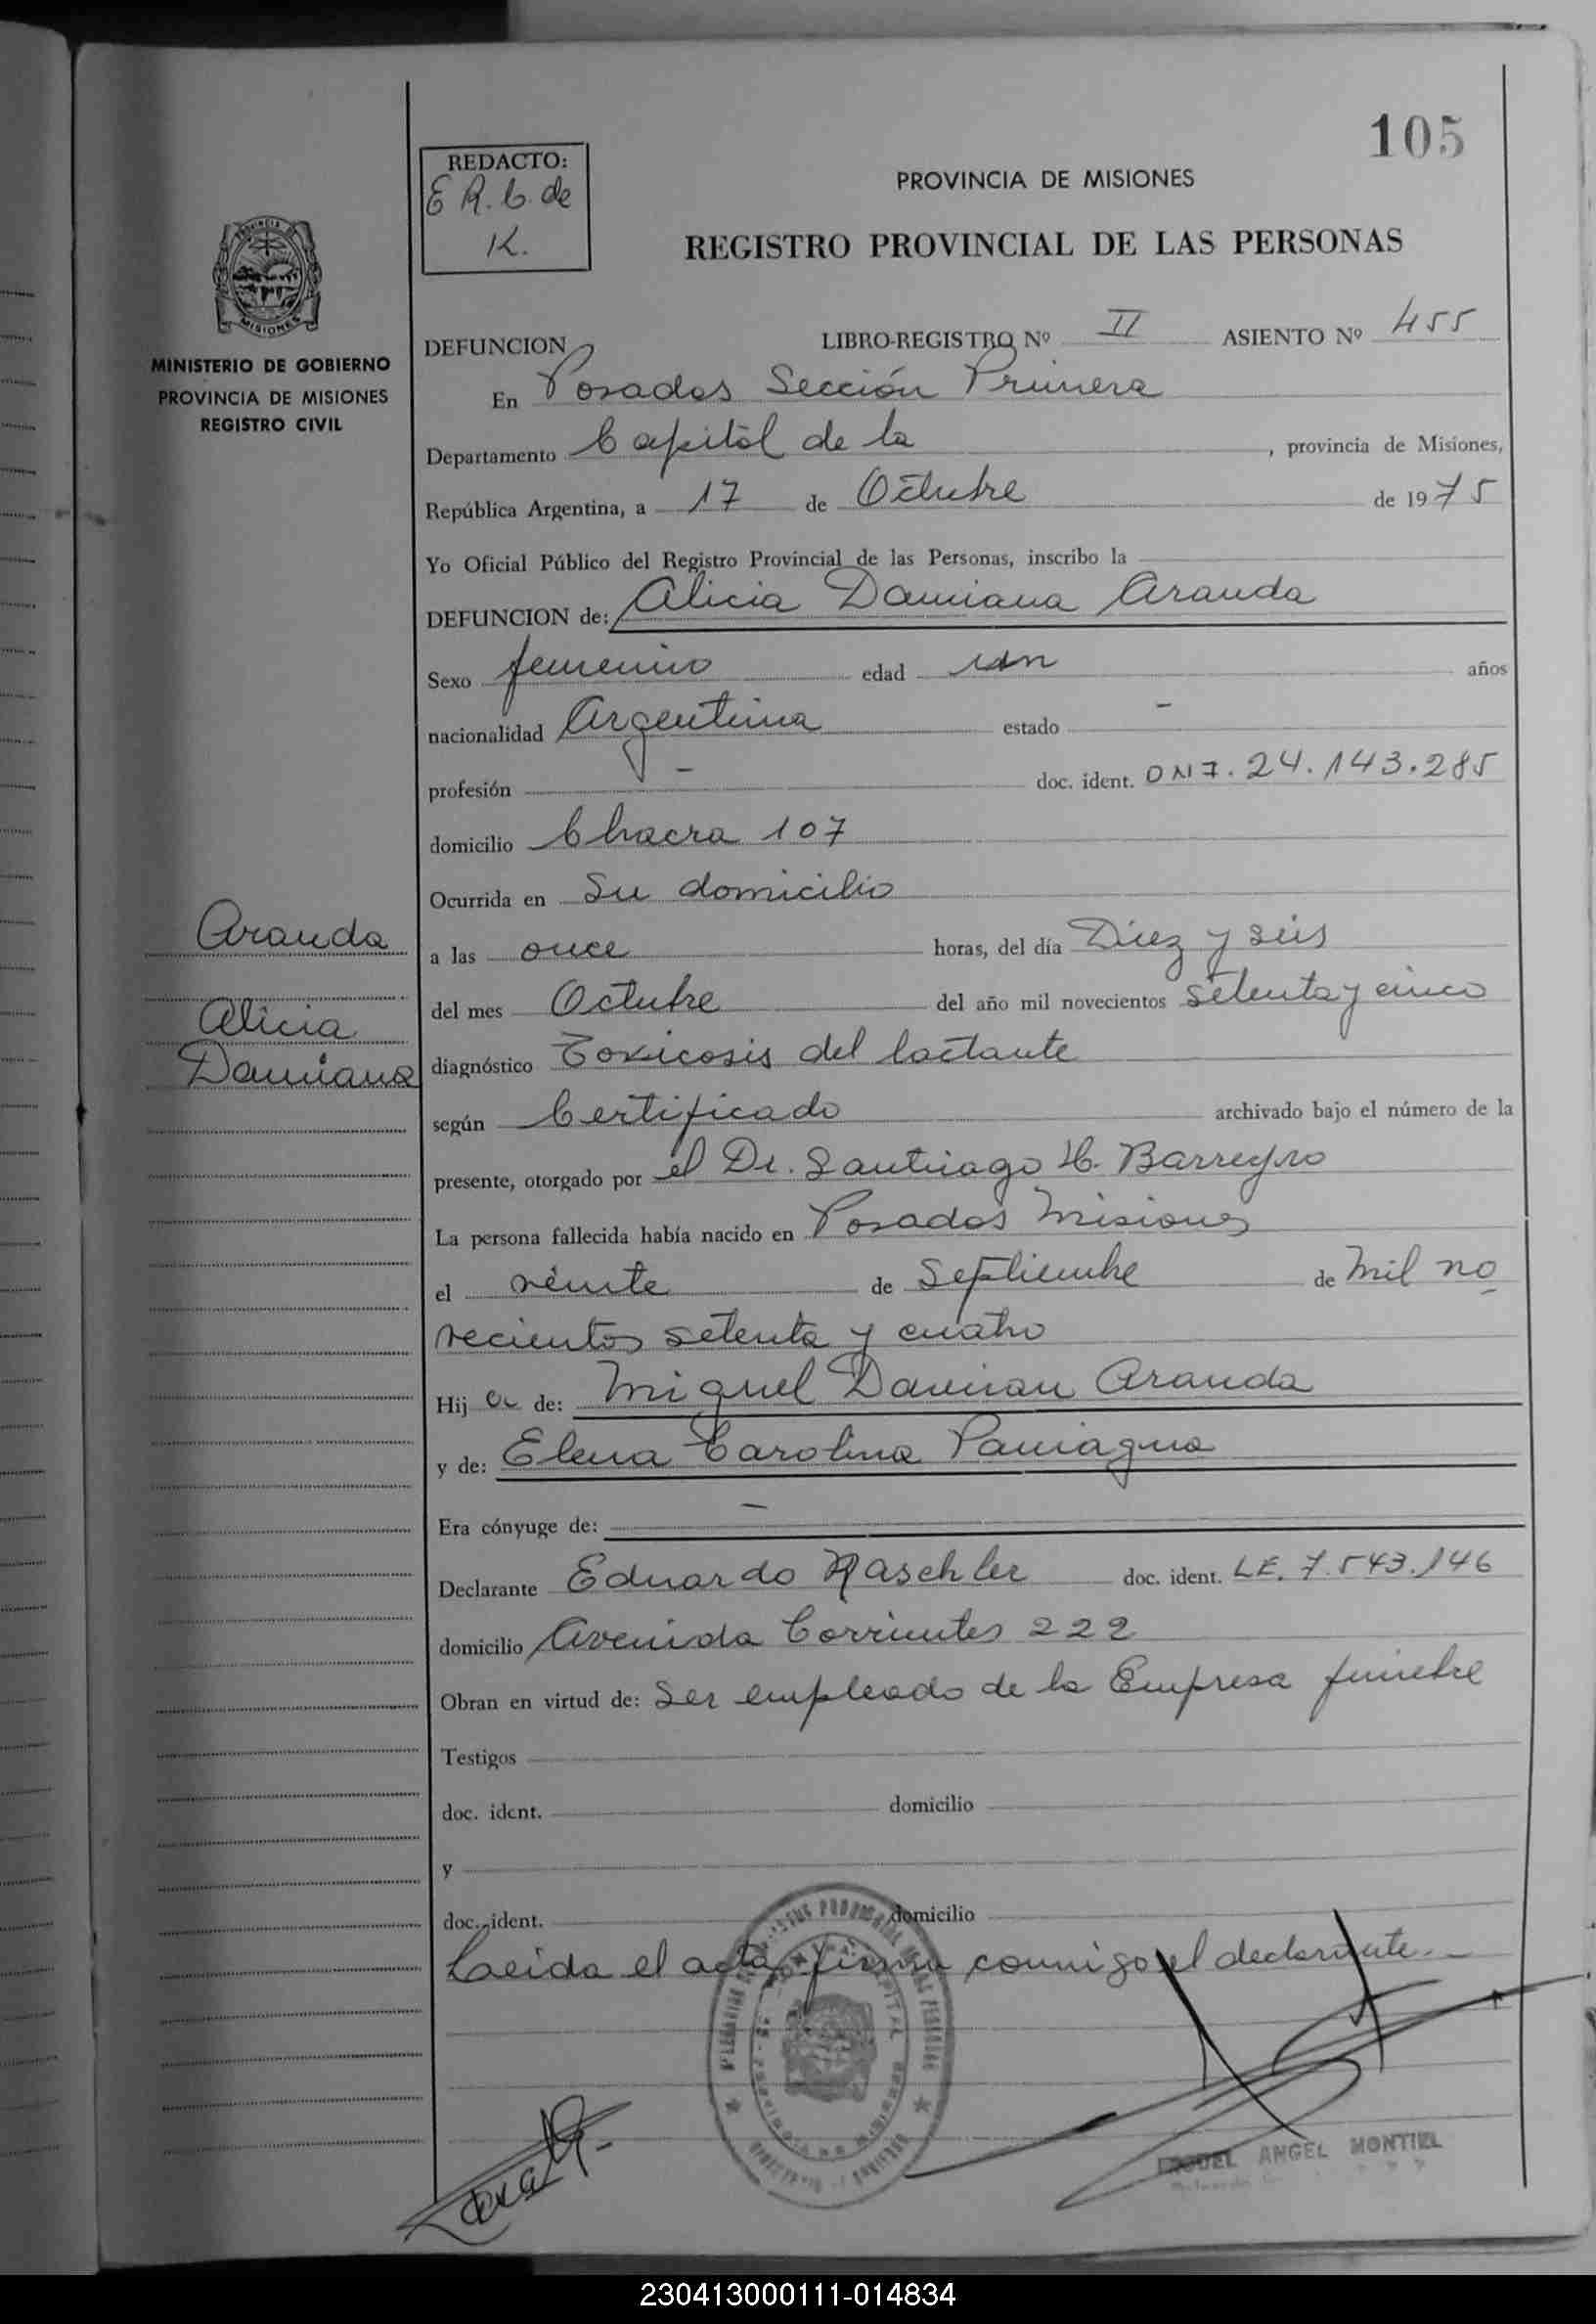 105
REDACTO:
E R. C. de
K.
PROVINCIA DE MISIONES
REGISTRO PROVINCIAL DE LAS PERSONAS
MISIONES
MINISTERIO DE GOBIERNO
PROVINCIA DE MISIONES
REGISTRO CIVIL
DEFUNCION LIBRO-REGISTRO Nº II ASIENTO Nº 455
En Posadas Sección Primera
Departamento Capital de la , provincia de Misiones,
República Argentina, a 17 de Octubre de 1975
Yo Oficial Público del Registro Provincial de las Personas, inscribo la
DEFUNCION de: Alicia Damiana Aranda
Sexo femenino edad un años
nacionalidad Argentina estado -
profesión - doc. ident. DNI. 24.143.285
domicilio Chacra 107
Ocurrida en Su domicilio
Aranda
a las once horas, del día Diez y seis
del mes Octubre del año mil novecientos setenta y cinco
Alicia
Damiana
diagnóstico Toxicosis del lactante
según Certificado archivado bajo el número de la
presente, otorgado por el Dr. Santiago H. Barreyro
La persona fallecida había nacido en Posadas Misiones
el veinte de Septiembre de Mil no
vecientos setenta y cuatro
Hij a de: Miguel Damian Aranda
y de: Elena Carolina Paniagua
Era cónyuge de: -
Declarante Eduardo Raschler doc. ident. LE. 7.543.146
domicilio Avenida Corrientes 222
Obran en virtud de: Ser empleado de la Empresa funebre
Testigos
doc. ident. domicilio
y
doc. ident. domicilio
Leida el acta firma conmigo el declarante.-
ANGEL MONTIEL
230413000111-014834